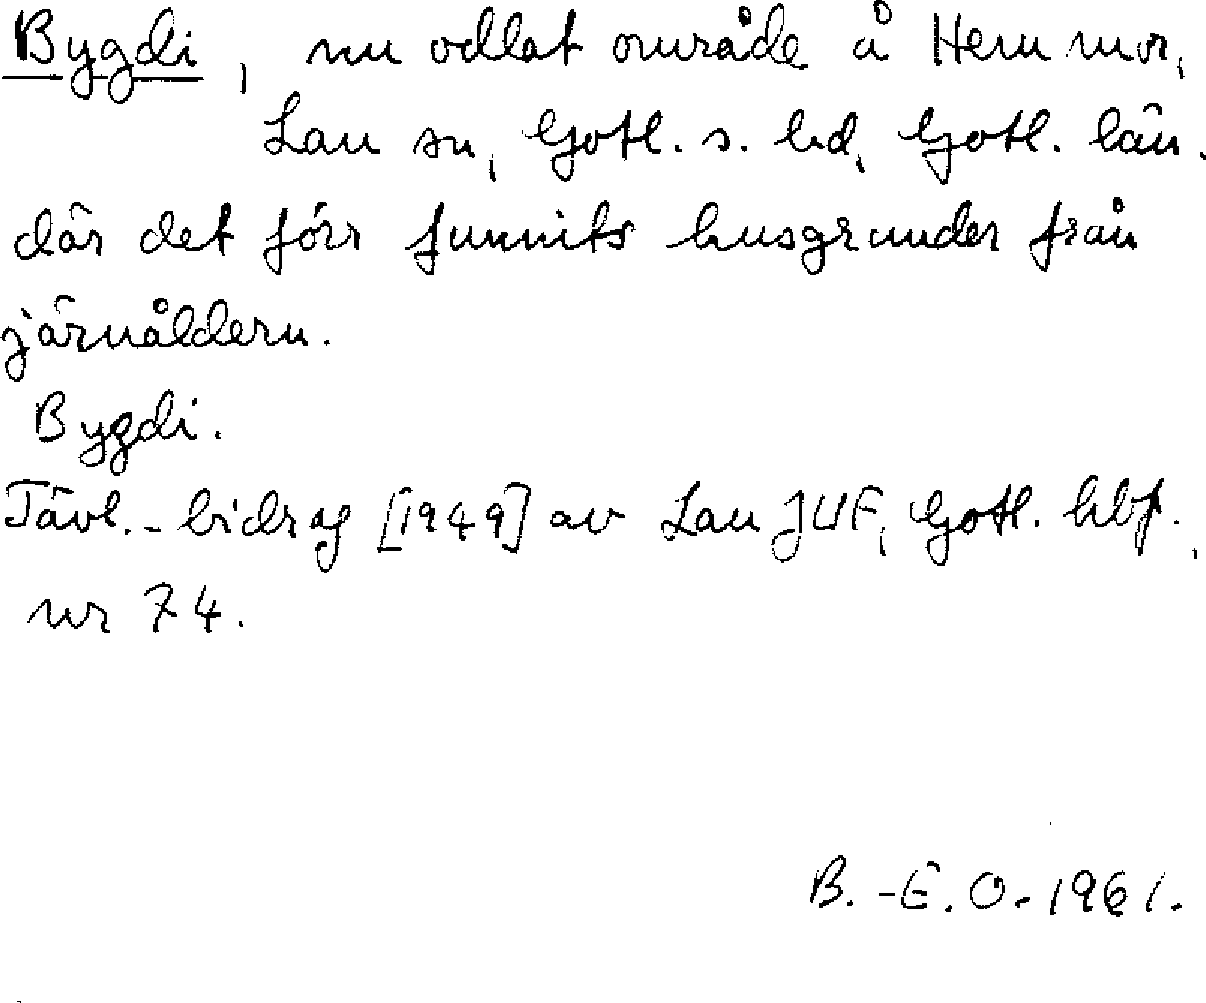 Bygdi, nu odlat område å Hemmor,
Lau sn, Gotl. s. hd, Gotl. län.
där det förr funnits husgrunder från
järnåldern.
Bygdi.
Tävl.-bidrag [1949] av Lau JUF, Gotl. hbf.,
nr 74.
B.-E.O. 1961.